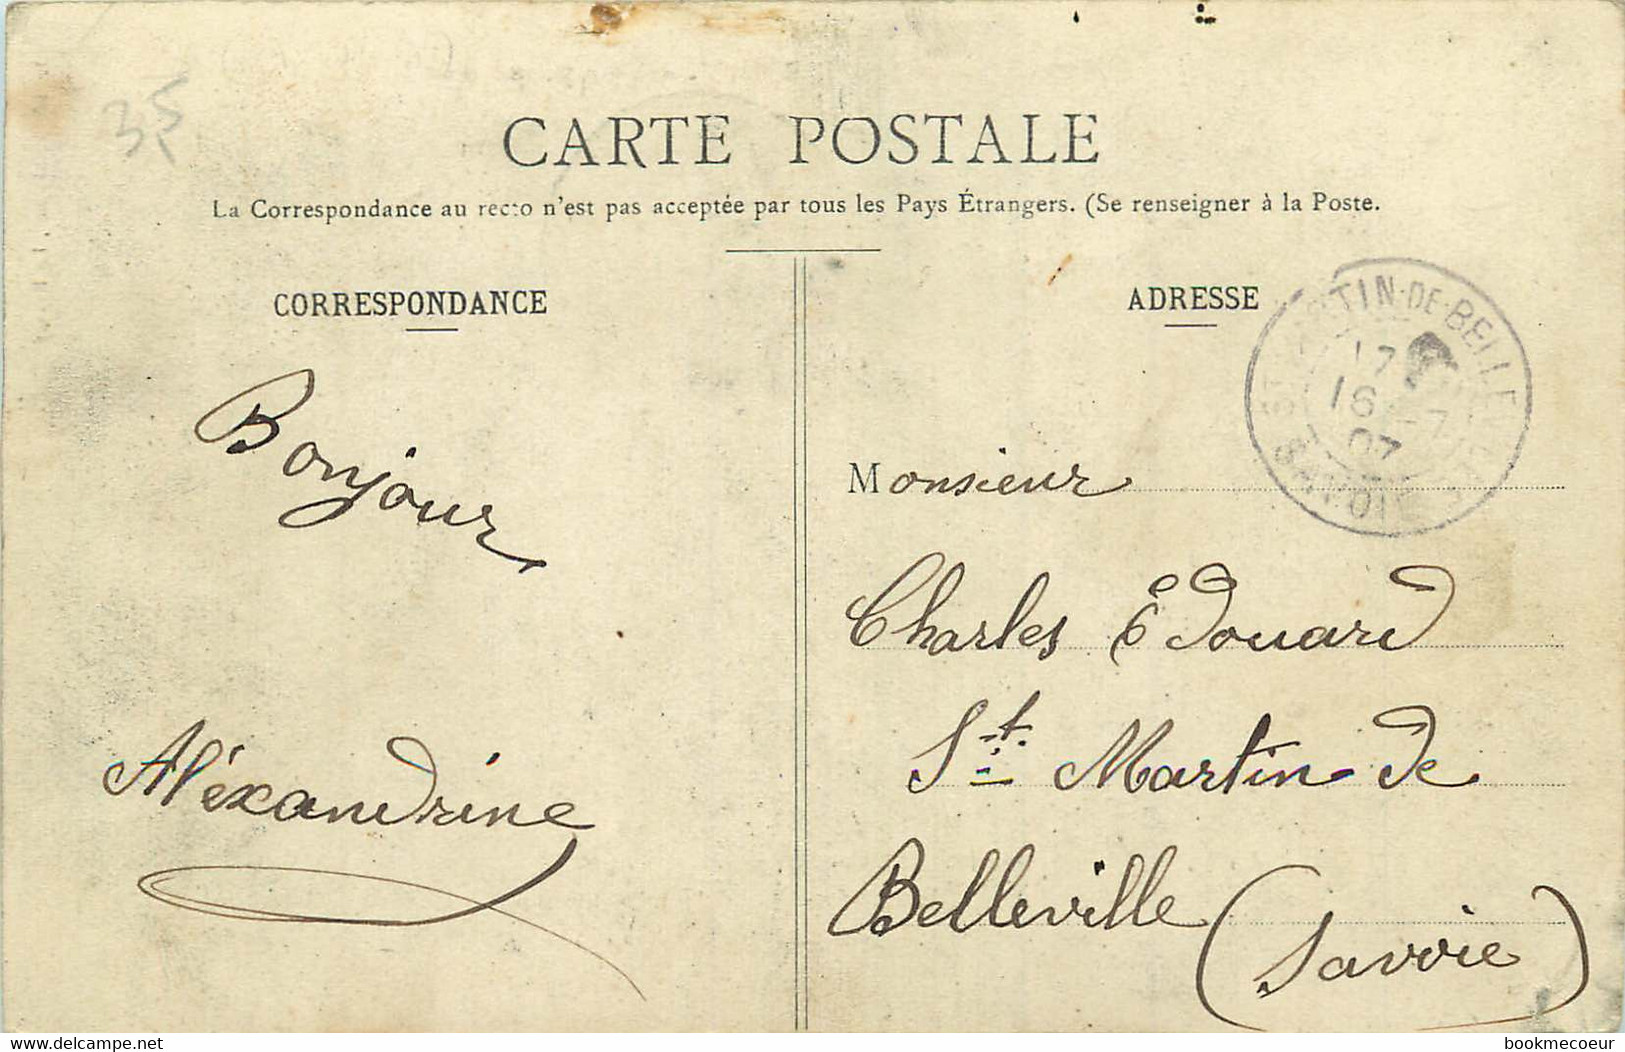 35
CARTE POSTALE
La Correspondance au recto n'est pas acceptée par tous les Pays Étrangers. (Se renseigner à la Poste.
CORRESPONDANCE
ADRESSE
TIN-DE-BELLE
17
16 -7
07
SAVOIE
Bonjour
Aléxandrine
Monsieur
Charles Édouard
St Martin de
Belleville
(Savoie)
delcampe.net
bookmecoeur